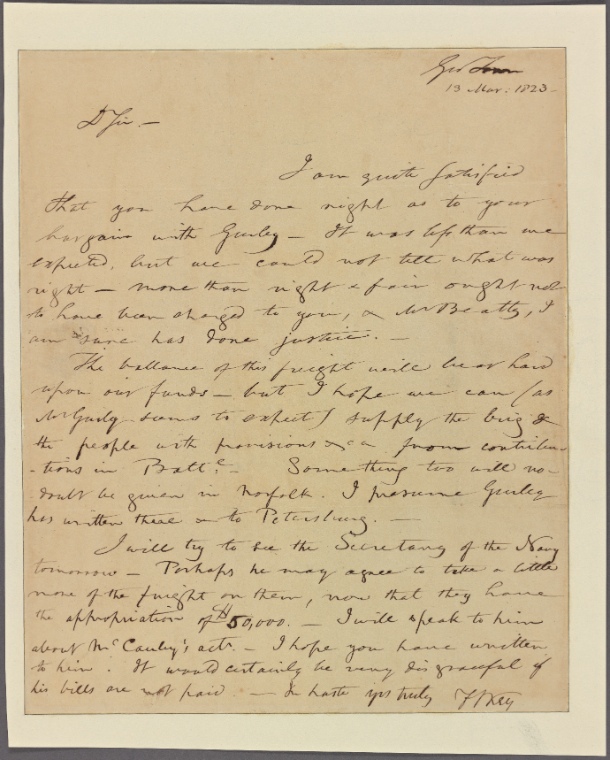 Geo Town
13 Mar: 1823 -
D Sir. -
I am quite satisfied
that you have done right as to your
bargain with Gurley - It was less than we
expected, but we could not tell what was
right - more than right & fair ought not
to have been charged to you, & Mr Beatty, I
am sure has done justice. -
The ballance of this freight will bear hard
upon our funds - but I hope we can (as
Mr Gurly seems to expect) supply the brig &
the people with provisions &c a from contribu
-tions in Balt:o - Something too will no-
doubt be given in Norfolk. I presume Gurley
has written there & to Petersburg. -
I will try to see the Secretary of the Navy
tomorrow - Perhaps he may agree to take a little
more of the freight on them, now that they have
the appropriation of 50,000. - I will speak to him
about McCauly's acts. - I hope you have written
to him. It would certainly be very disgraceful if
his bills are not paid. - In haste yrs truly F S Key